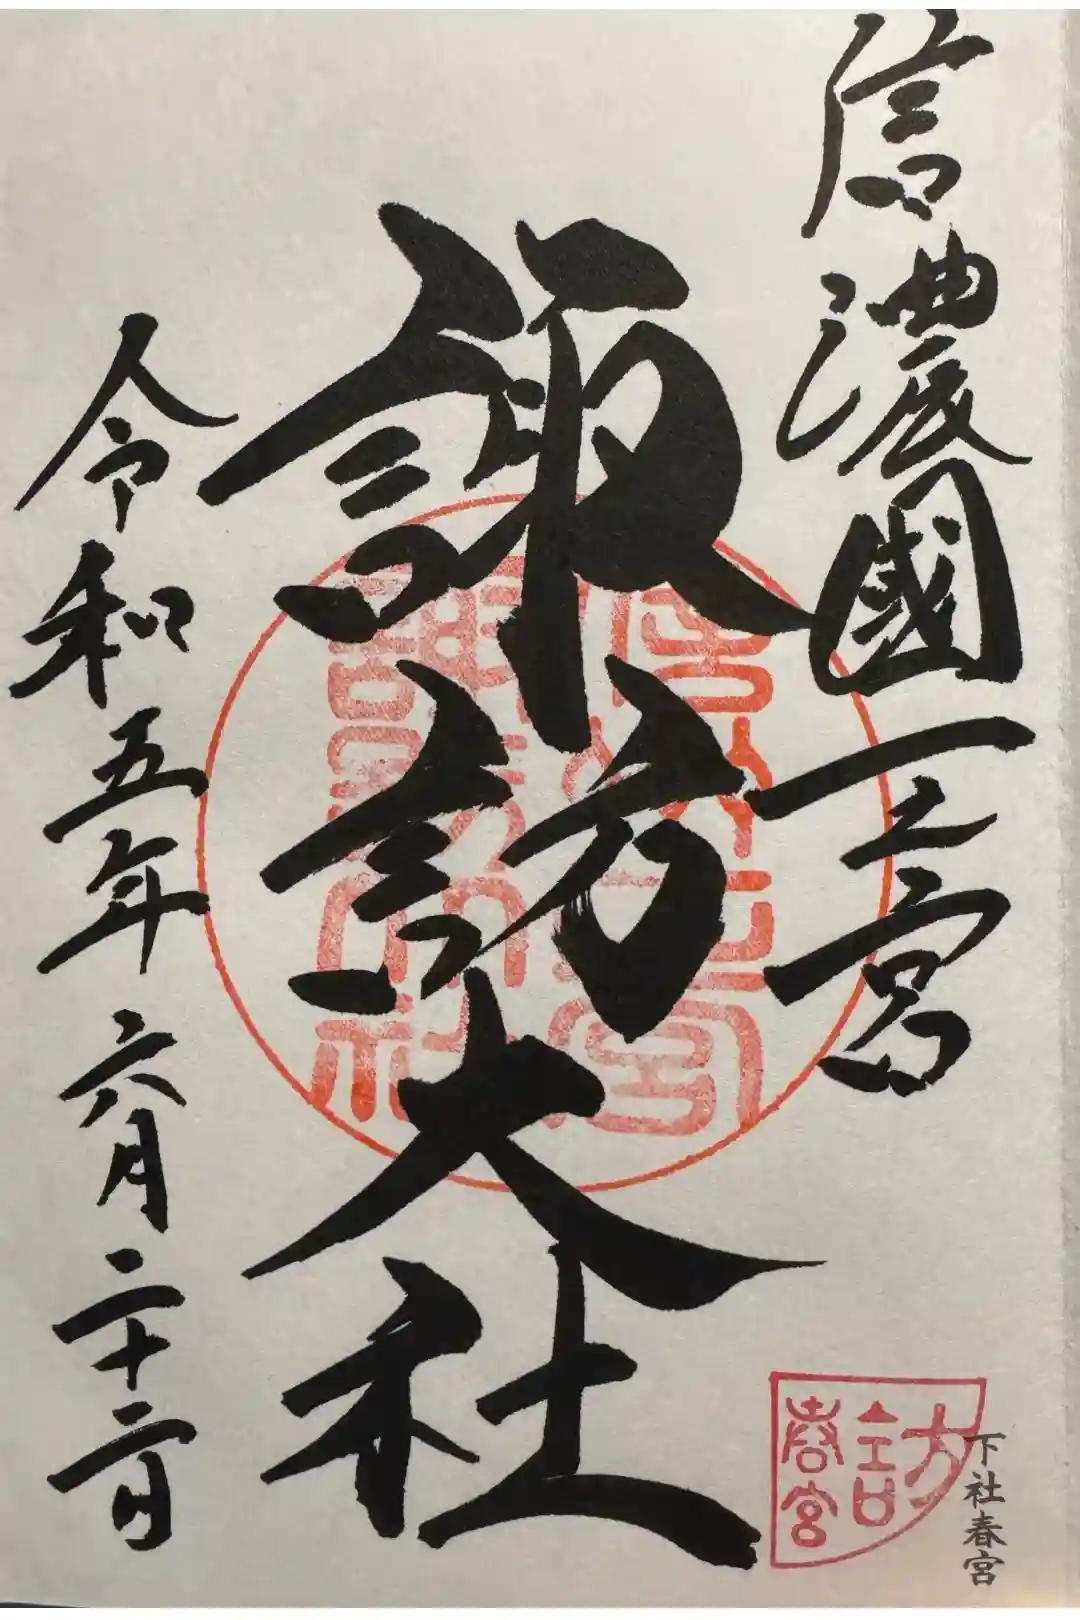 信濃國一之宮
諏訪大社
令和五年六月二十二日
下社春宮
訪
春宮